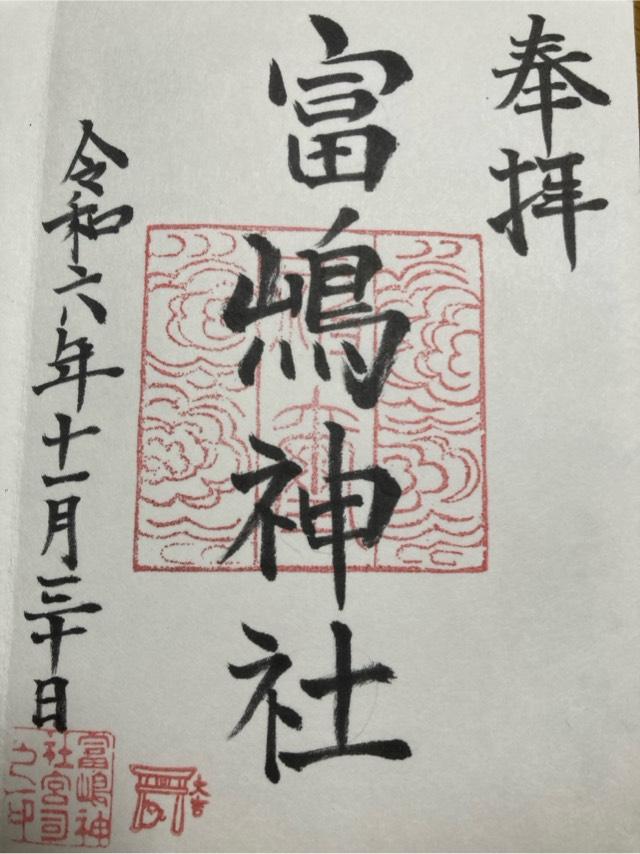 奉拝
富嶋神社
令和六年十一月三十日
富嶋神
社宮司
之印
大吉